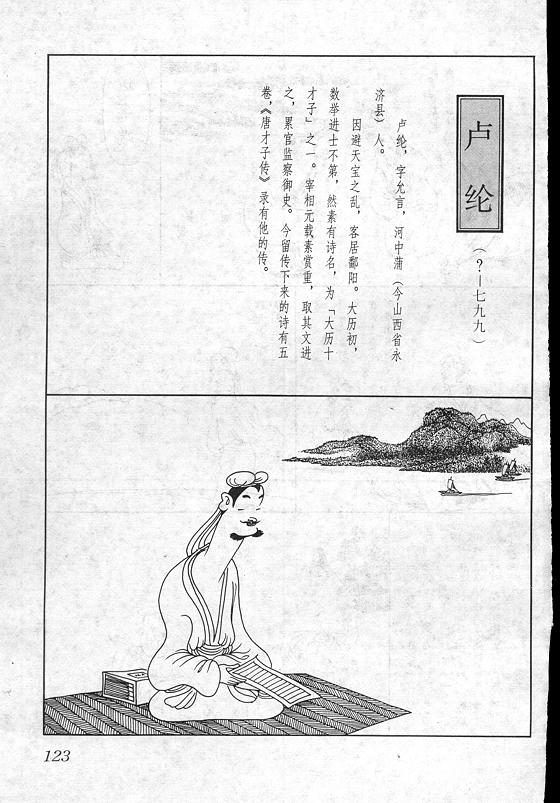 卢纶
（？—七九九）
卢纶，字允言，河中蒲（今山西省永
济县）人。
因避天宝之乱，客居鄱阳。大历初，
数举进士不第，然素有诗名，为「大历十
才子」之一。宰相元载素赏重，取其文进
之，累官监察御史。今留传下来的诗有五
卷，《唐才子传》录有他的传。
123